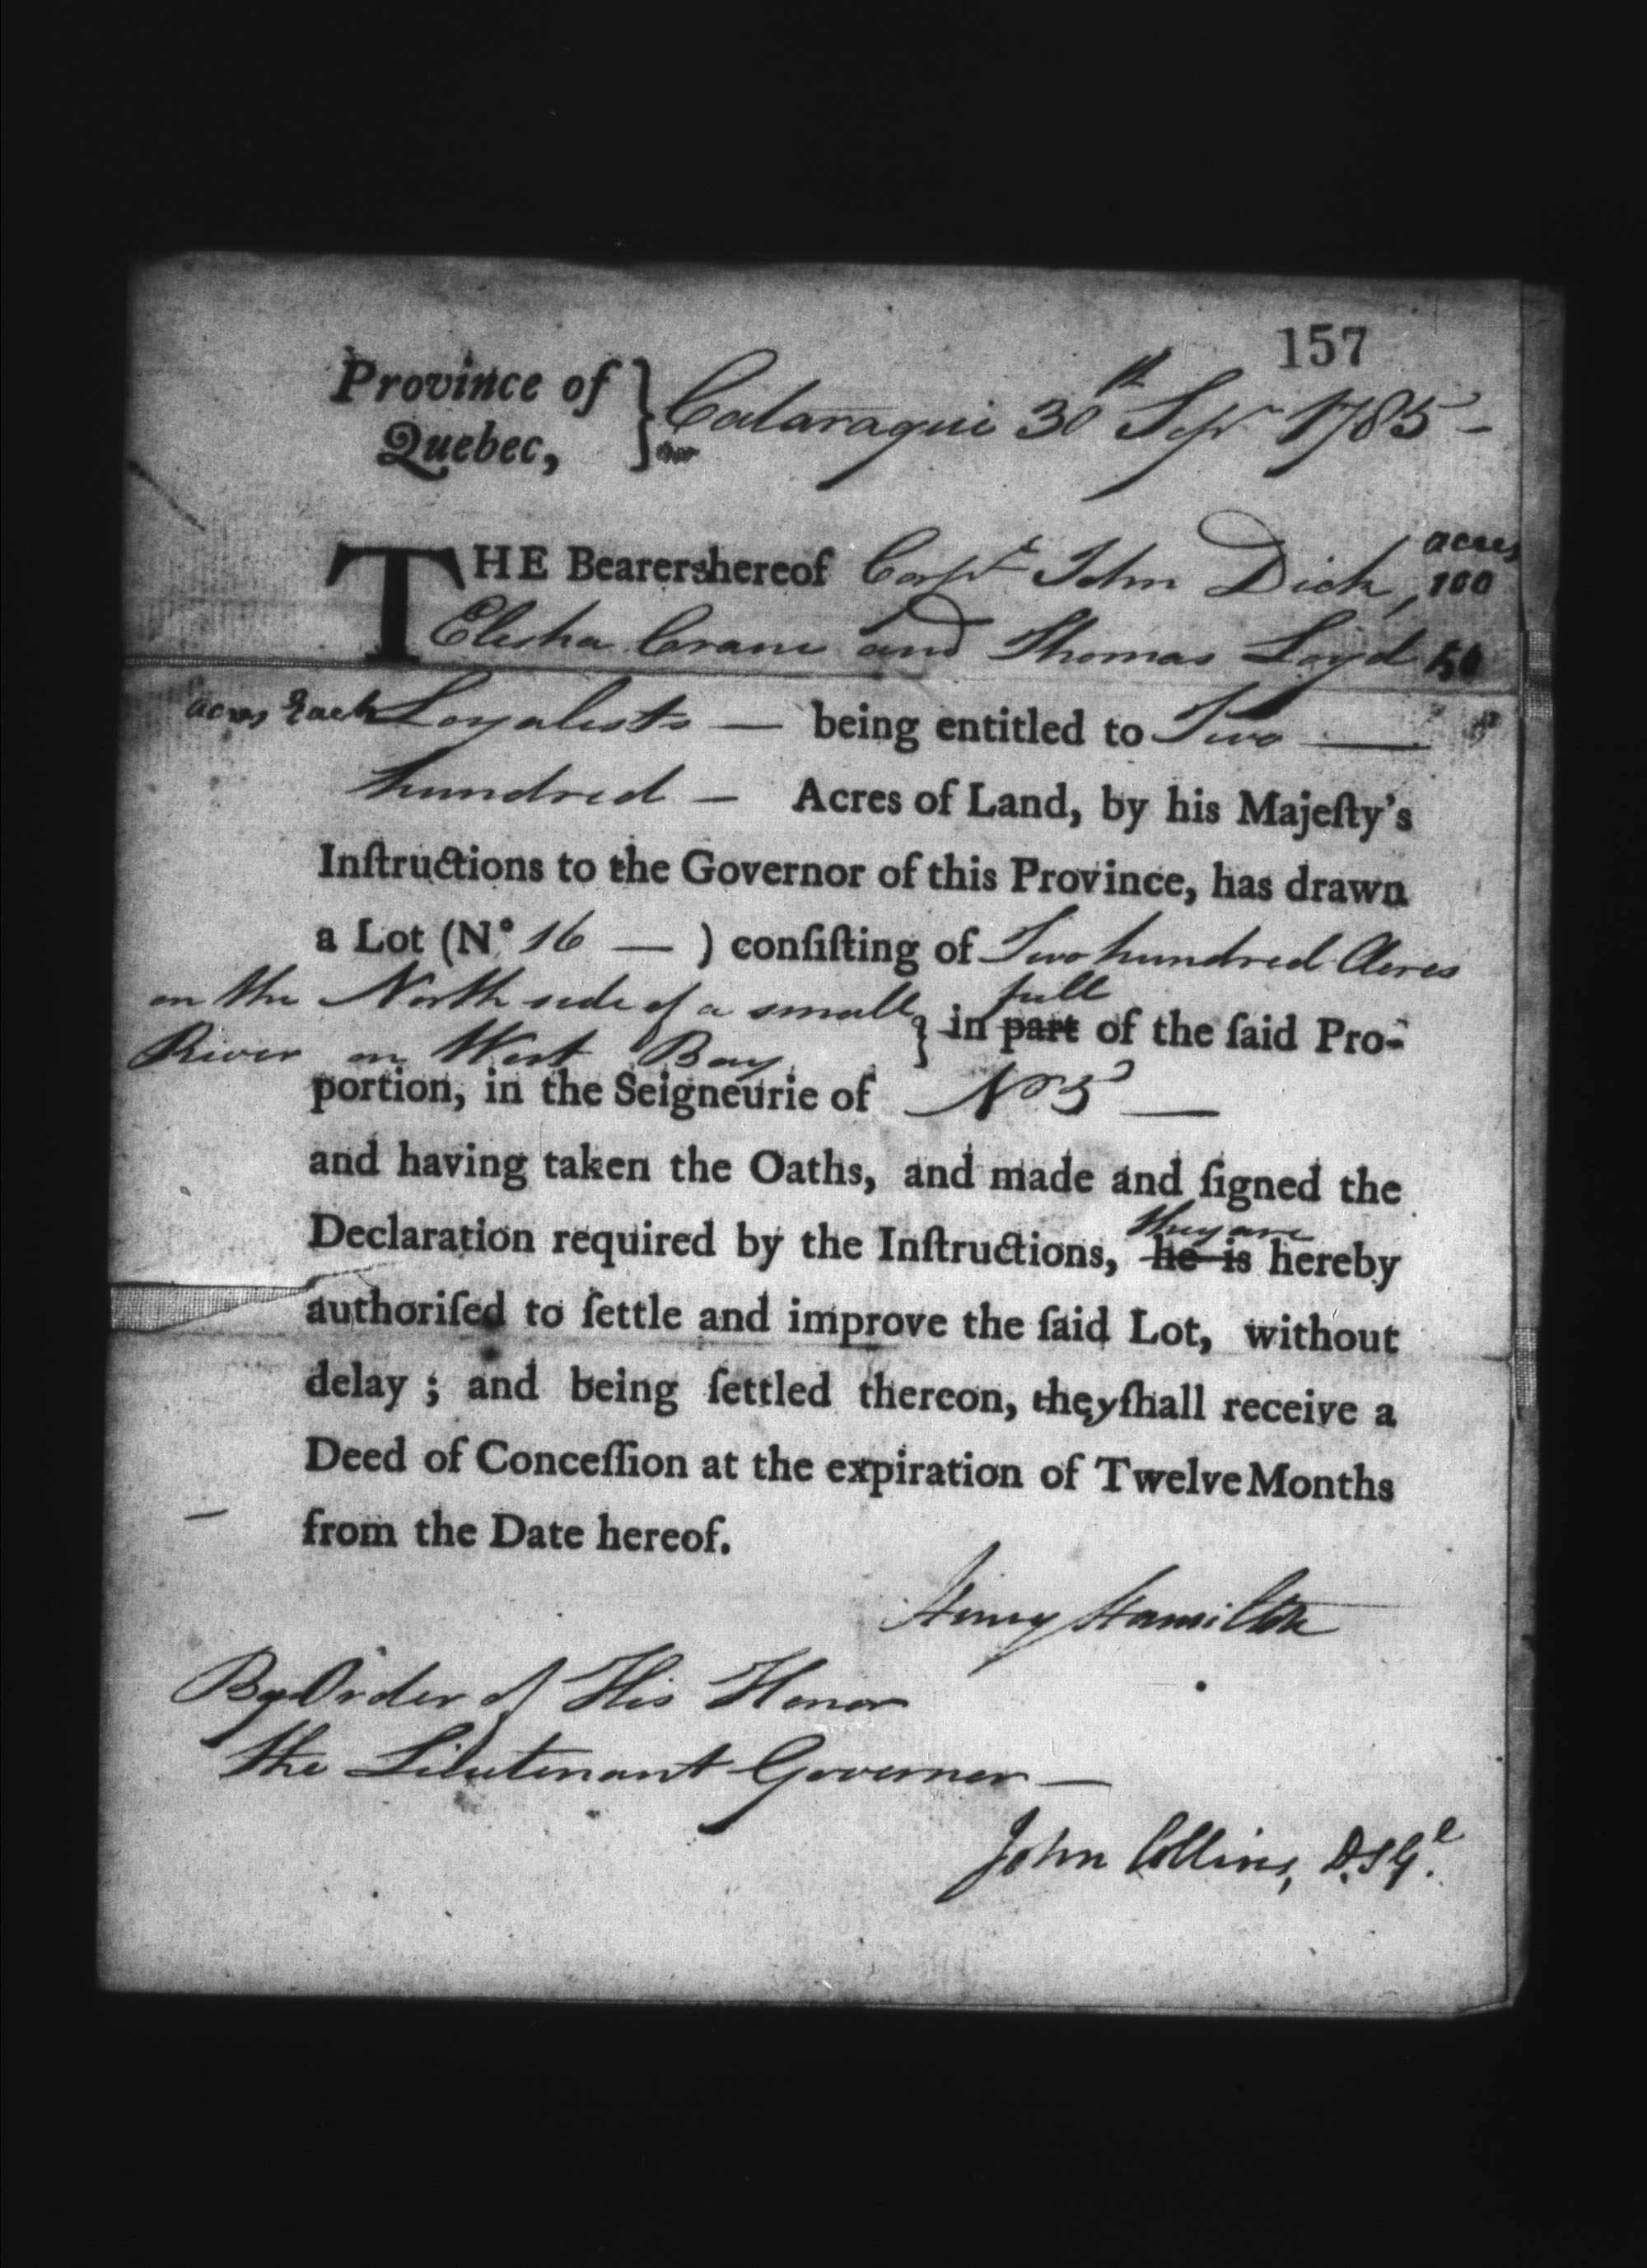 157
Province of } Cataraqui 30th Sepr 1785 -
Quebec,
THE Bearers hereof Corpl John Dick, acres 100
Elisha Crane and Thomas Loyd 50
acres Each Loyalists — being entitled to Two —
hundred — Acres of Land, by his Majeſty's
Inſtructions to the Governor of this Province, has drawn
a Lot (N° 16 — ) conſiſting of Two hundred Acres
on the North side of a small } in part full of the ſaid Pro-
River on West Bay
portion, in the Seigneurie of No 5 —
and having taken the Oaths, and made and ſigned the
they are
Declaration required by the Inſtructions, he is hereby
authoriſed to ſettle and improve the ſaid Lot, without
delay ; and being ſettled thereon, they ſhall receive a
Deed of Conceſſion at the expiration of Twelve Months
from the Date hereof.
Henry Hamilton
By Order of His Honor
the Lieutenant Governor —
John Collins, D.S.Gl.